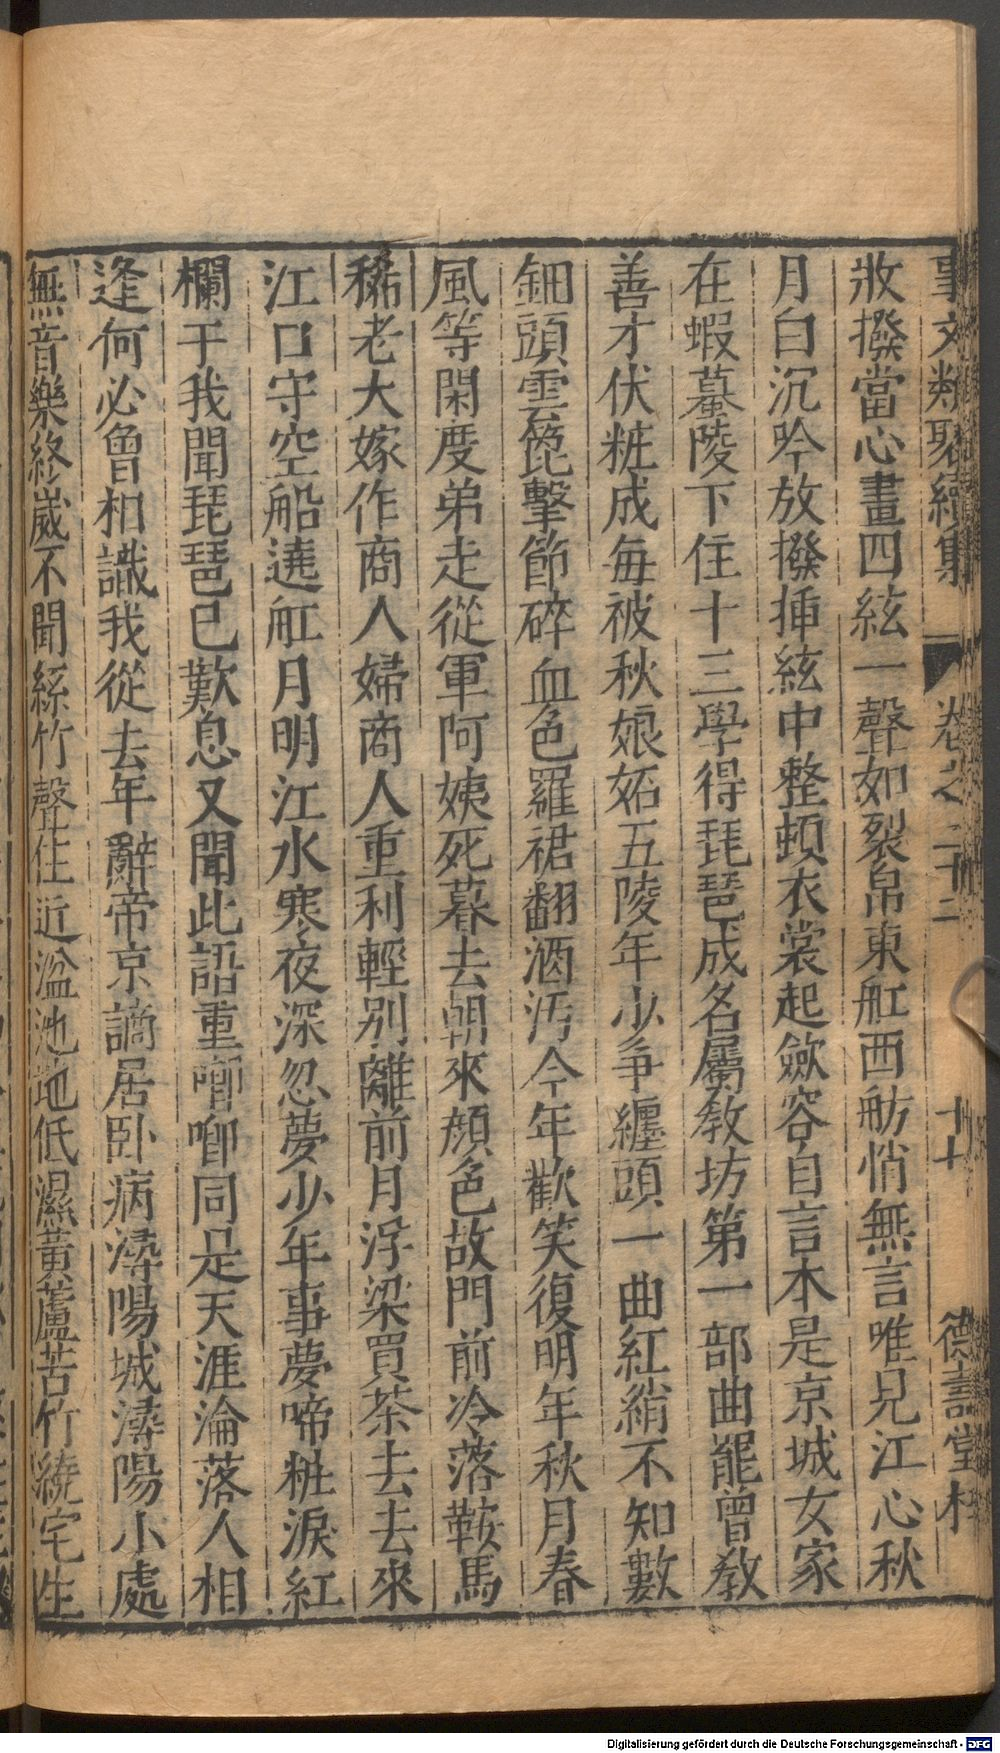 事文類聚續集 卷之二十二 十七 德壽堂梓
收撥當心畫四絃一聲如裂帛東舡西舫悄無言唯見江心秋
月白沉吟放撥揷絃中整頓衣裳起歛容自言本是京城女家
在蝦蟇陵下住十三學得琵琶成名屬敎坊第一部曲罷曾敎
善才伏粧成每被秋娘妬五陵年少爭纏頭一曲紅綃不知數
鈿頭雲篦擊節碎血色羅裙翻酒汚今年歡笑復明年秋月春
風等閑度弟走從軍阿姨死暮去朝來顔色故門前冷落鞍馬
稀老大嫁作商人婦商人重利輕別離前月浮梁買茶去去來
江口守空船遶舡月明江水寒夜深忽夢少年事夢啼粧淚紅
欄干我聞琵琶已歎息又聞此語重喞喞同是天涯淪落人相
逢何必曾相識我從去年辭帝京謫居卧病潯陽城潯陽小處
無音樂終歲不聞絲竹聲住近湓池地低濕黃蘆苦竹繞宅生
Digitalisierung gefördert durch die Deutsche Forschungsgemeinschaft - DFG